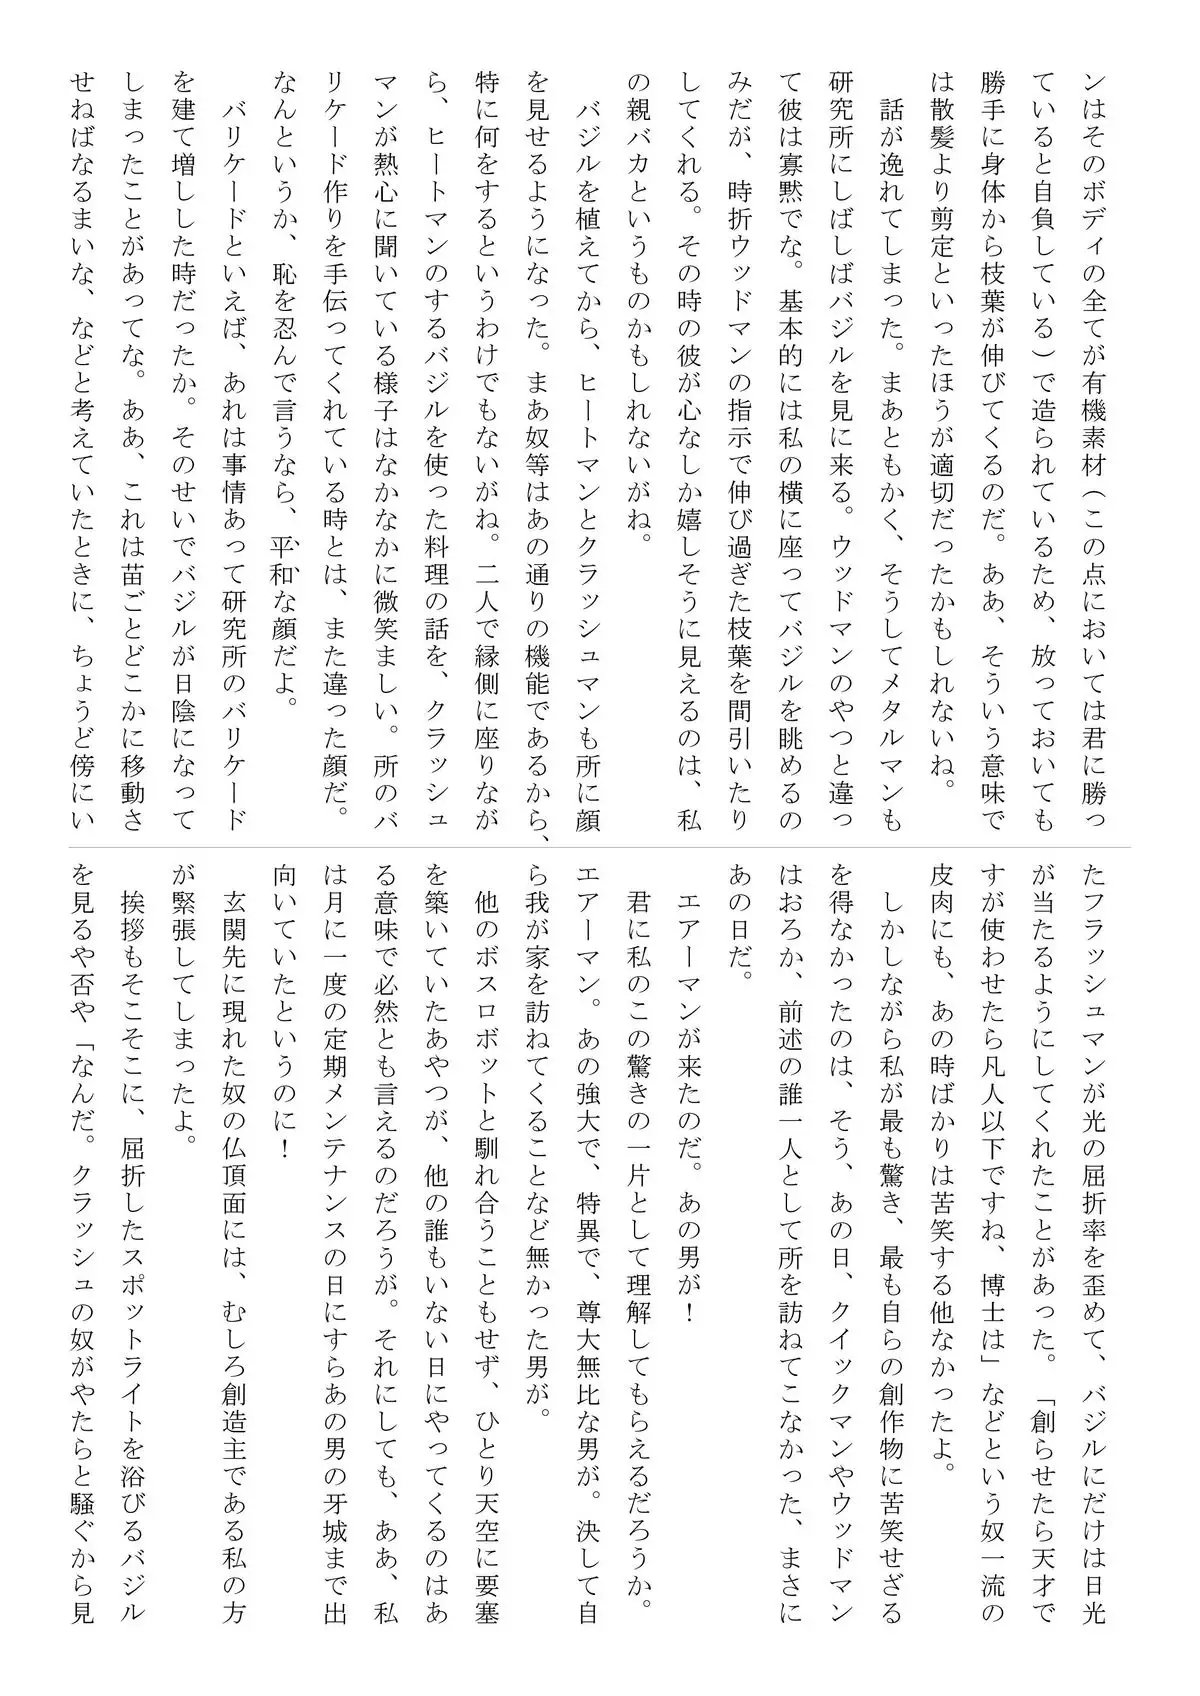 ンはそのボディの全てが有機素材（この点においては君に勝っ
ていると自負している）で造られているため、放っておいても
勝手に身体から枝葉が伸びてくるのだ。ああ、そういう意味で
は散髪より剪定といったほうが適切だったかもしれないね。
　話が逸れてしまった。まあともかく、そうしてメタルマンも
研究所にしばしばバジルを見に来る。ウッドマンのやつと違っ
て彼は寡黙でな。基本的には私の横に座ってバジルを眺めるの
みだが、時折ウッドマンの指示で伸び過ぎた枝葉を間引いたり
してくれる。その時の彼が心なしか嬉しそうに見えるのは、私
の親バカというものかもしれないがね。
　バジルを植えてから、ヒートマンとクラッシュマンも所に顔
を見せるようになった。まあ奴等はあの通りの機能であるから、
特に何をするというわけでもないがね。二人で縁側に座りなが
ら、ヒートマンのするバジルを使った料理の話を、クラッシュ
マンが熱心に聞いている様子はなかなかに微笑ましい。所のバ
リケード作りを手伝ってくれている時とは、また違った顔だ。
なんというか、恥を忍んで言うなら、平和な顔だよ。
　バリケードといえば、あれは事情あって研究所のバリケード
を建て増しした時だったか。そのせいでバジルが日陰になって
しまったことがあってな。ああ、これは苗ごとどこかに移動さ
せねばなるまいな、などと考えていたときに、ちょうど傍にい
たフラッシュマンが光の屈折率を歪めて、バジルにだけは日光
が当たるようにしてくれたことがあった。「創らせたら天才で
すが使わせたら凡人以下ですね、博士は」などという奴一流の
皮肉にも、あの時ばかりは苦笑する他なかったよ。
　しかしながら私が最も驚き、最も自らの創作物に苦笑せざる
を得なかったのは、そう、あの日、クイックマンやウッドマン
はおろか、前述の誰一人として所を訪ねてこなかった、まさに
あの日だ。
　エアーマンが来たのだ。あの男が！
　君に私のこの驚きの一片として理解してもらえるだろうか。
エアーマン。あの強大で、特異で、尊大無比な男が。決して自
ら我が家を訪ねてくることなど無かった男が。
　他のボスロボットと馴れ合うこともせず、ひとり天空に要塞
を築いていたあやつが、他の誰もいない日にやってくるのはあ
る意味で必然とも言えるのだろうが。それにしても、ああ、私
は月に一度の定期メンテナンスの日にすらあの男の牙城まで出
向いていたというのに！
　玄関先に現れた奴の仏頂面には、むしろ創造主である私の方
が緊張してしまったよ。
　挨拶もそこそこに、屈折したスポットライトを浴びるバジル
を見るや否や「なんだ。クラッシュの奴がやたらと騒ぐから見